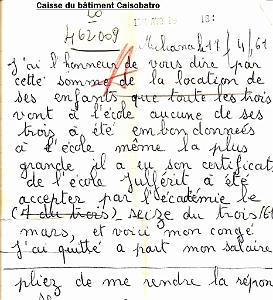 Caisse du bâtiment Caisobatro
462009
Miliana le 17/4/61
J'ai l'honneur de vous dire par
cette somme de la location de
ses enfants que toute les trois
vont à l'école aucune de ses
trois a été embon données
a l'école même la plus
grande il a eu son certificat
de l'école Jullérit a été
accepter par l'écadémie le
(7 du trois) seize du trois/61
mars, et voici mon congé
J'ai quitté a part mon salaire
pliez de me rendre la répon